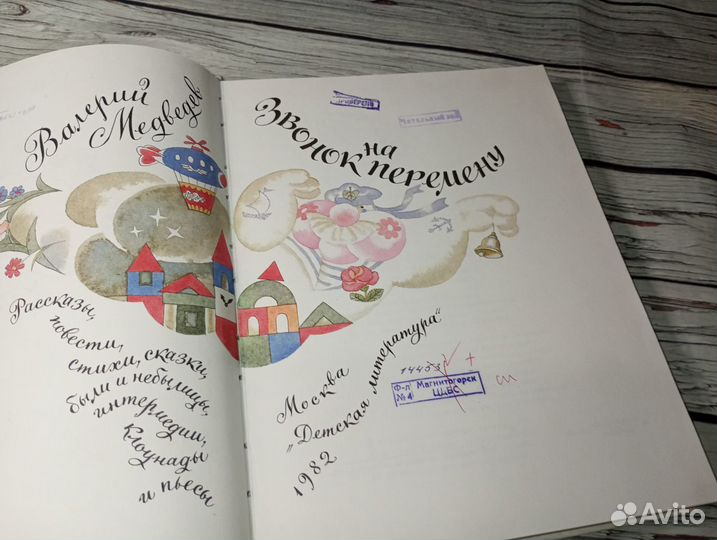 Валерий
Медведев
Рассказы,
повести,
стихи, сказки,
были и небылицы,
интермедии,
клоунады
и пьесы
Звонок на перемену
Читальный зал
Москва
„Детская литература“
1982
14453
Ф-л Магнитогорск
№4 ЦДБС
Avito